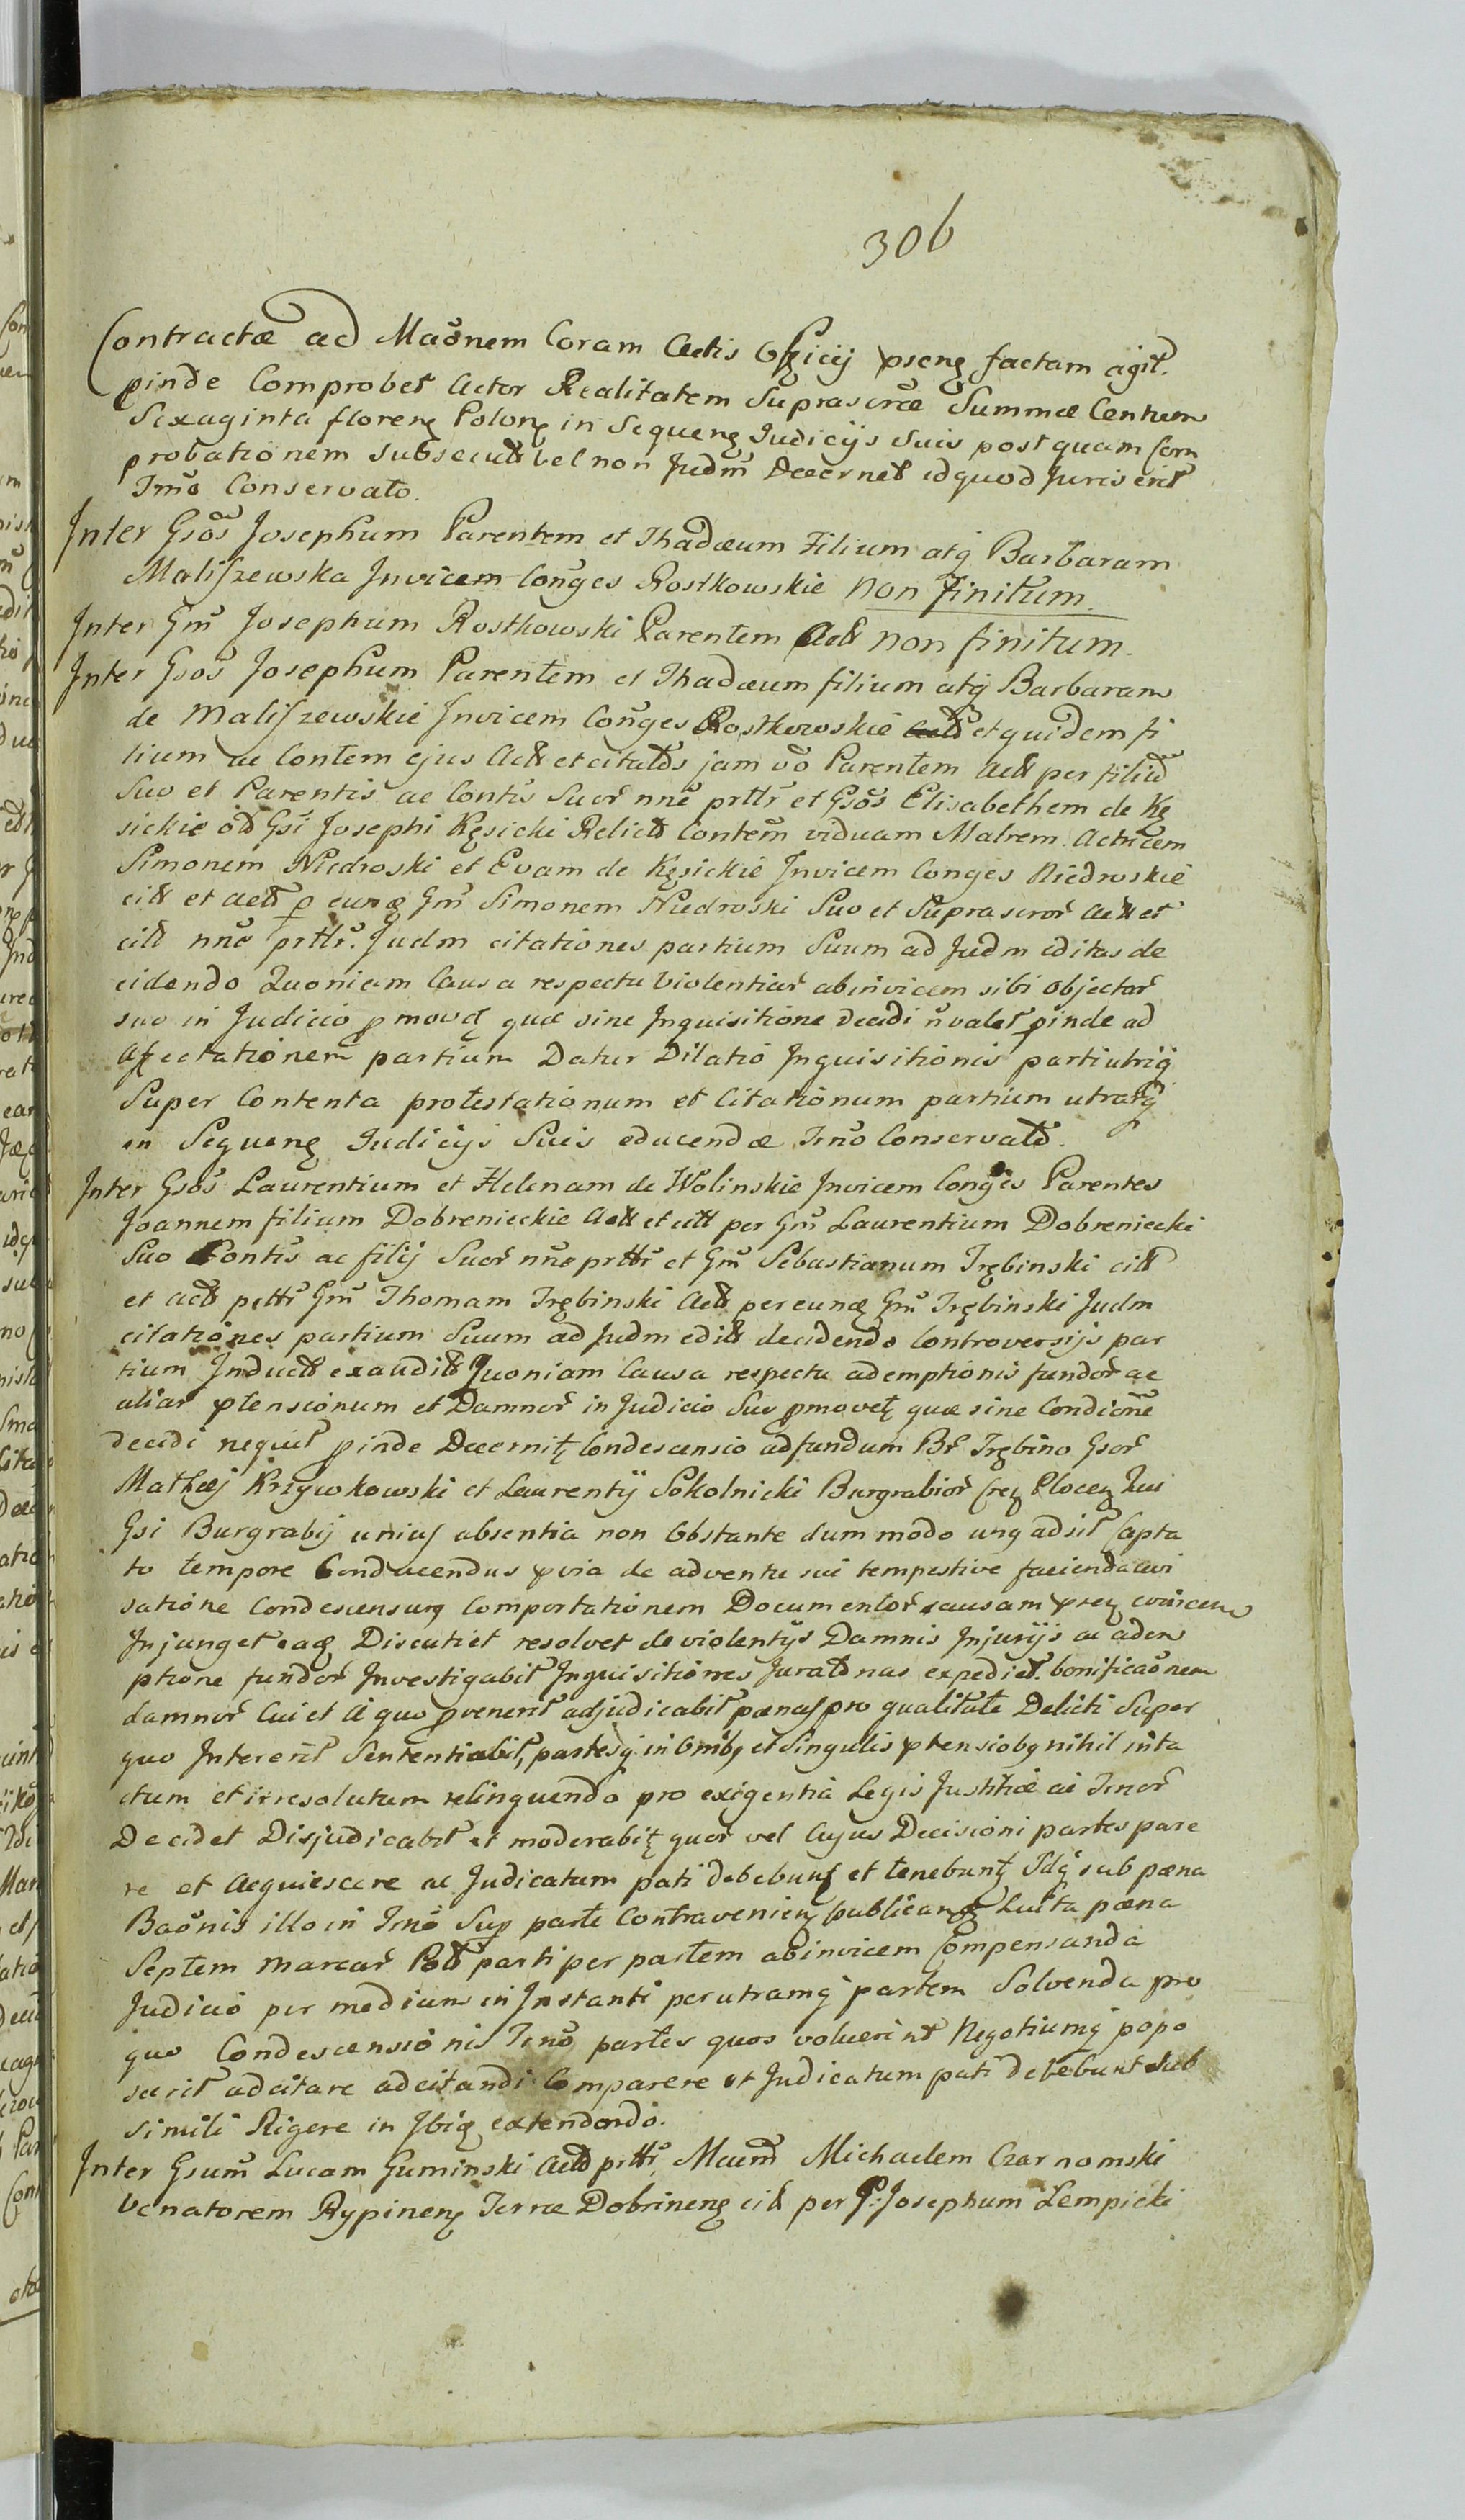 306
Contractæ ad Maõnem Coram Actis Officij pseng factam agit.
pinde Comprobet Actor Realitatem Suprascrõæ Summæ Centum
Sexaginta floreng Polong in Sequeng Judicijs Suis post quam Com
probationem subsecutã vel non Judm̃ Decernet id quod Juris erit
Tm̃o Conservato.
Inter Gsõs Josephum Parentem et Thadæum Filium atq Barbaram
Maliszewska Invicem Conges Rostkowskie non finitum.
Inter Gm̃ Josephum Rostkowski Parentem Act non finitum.
Inter Gsõs Josephum Parentem et Thadæum filium atq Barbaram
de Maliszewskie Invicem Conges Rostkowskie et quidem fi
lium ac Contem ejus Act et citatos jam võ Parentem Act per filiũ
Suo et Parentis ac Contis Suor nñe prttr et Gsõs Elisabethem de Kę
sickie Gsi Josephi Kęsicki Relict Contem viduam Matrem Actricem
Simonem Niedroski et Evam de Kęsickie Invicem Conges Niedroskie
citt et act p eunq Gm̃ Simonem Niedroski Suo et Suprascror act et
citt nñe prttr. Judm citationes partium Suum ad Judm editas de
cidendo Quoniam Causa respectu violentiar abinvicem sibi objectar
suo in Judicio pmovet quæ sine Inquisitione decidi ñ valet pinde ad
Affectationem partium Datur Dilatio Inquisitionis parti utriq
Super Contenta protestationum et Citationum partium utrarq
in Sequeng Judicijs Suis educendæ Tm̃o Conservato.
Inter Gsõs Laurentium et Helenam de Wolinskie Invicem Conges Parentes
Joannem filium Dobrenieckie Act et citt per Gm̃ Laurentium Dobreniecki
Suo Contis ac filij Suor nñe prttr et Gm̃ Sebastianum Trębinski citt
et act prttr Gm̃ Thomam Trębinski Act per eunq Gm̃ Trębinski Judm
citationes partium Suum ad Judm edit decidendo Controversijs par
tium Induct exaudit Quoniam Causa respectu ademptionis fundor ac
aliar ptensionum et Damnor in Judicio Suo pmovet quæ sine Condicõne
decidi nequit pinde Decernit Condescensio ad fundum Br Trębino Gsor
Mathæj Krzywkowski et Laurentij Sokolnicki Burgrabior Plocen Qui
Gsi Burgrabij unius absentia non Obstante dum modo unq adsit Capta
to tempore Conducendus pvia de adventu sui tempestive facienda avi
satione Condescensurq Comportationem Documentor causam
Injunget eaq Discutiet resolvet de violentijs Damnis Injurijs ac adem
ptione fundor Investigabit Inquisitiones Juratõnas expediet. bonificaõnem
damnor Cui et A quo pvenerit adjudicabit pænas pro qualitate Delicti Super
quo Intererit Sententiabit, partesq in Omibq et Singulis ptensiobq nihil inta
ctum et irresolutum relinquendo pro exigentia Legis Justitiæ ac Tmor
Decidet Disjudicabit et moderabit quor vel Cujus Decisioni partes pare
re et Acquiescere ac Judicatum pati debebunt et tenebunt Idq sub pæna
Baõnis illo in Tm̃o Sup parte Contravenien publicang Luita pæna
Septem marcar Pol parti per partem abinvicem Compensanda
Judicio per medium in Instanti per utramq partem Solvenda pro
quo Condescensionis Tm̃o partes quos voluerint Negotiumq popo
scerit adcitare adcitandi Comparere et Judicatum pati debebunt sub
simili Rigore in Ibiq extendendo.
Inter Gsum̃ Lucam Guminski Act prttr Mcum̃ Michaelem Czarnomski
Venatorem Rypineng Terræ Dobrineng citt per G: Josephum Lempicki